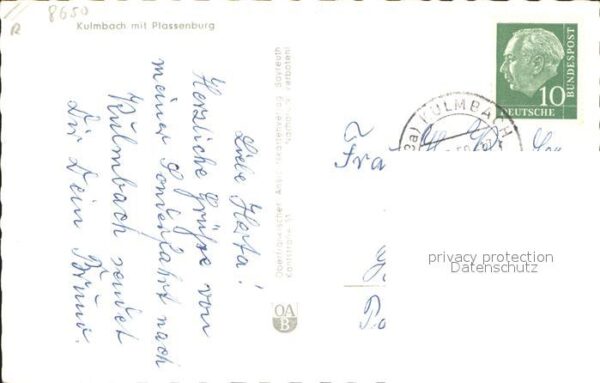 8650
Kulmbach mit Plassenburg
Liebe Herta!
Herzliche Grüße von
meiner Sonderfahrt nach
Kulmbach sendet
Dir Dein Bruno.
Oberfränkischer Ansichtskartenverlag Bayreuth
Kantstrasse
Nachdruck verboten!
OA
B
KULMBACH
10
DEUTSCHE
BUNDESPOST
Fra
privacy protection
Datenschutz